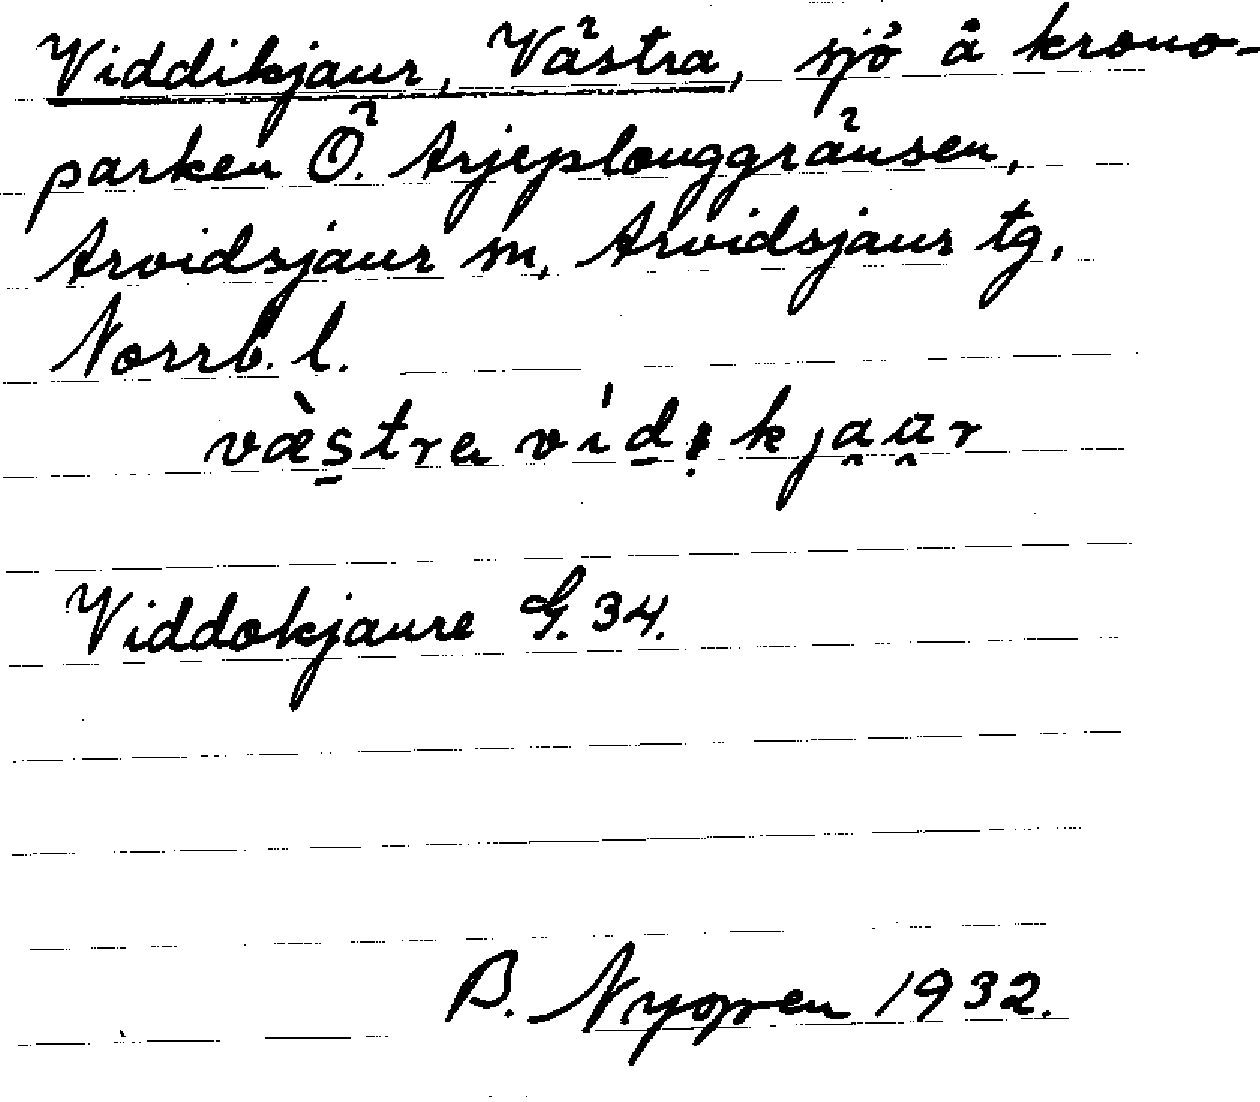 Viddikjaur, Västra, sjö å krono-
parken Ö. Arjeplouggränsen,
Arvidsjaur sn, Arvidsjaur tg,
Norrb. l.
væ̀s̱tra víḏ kja̯a̯r
Viddokjaure G. 34.
B. Nygren 1932.